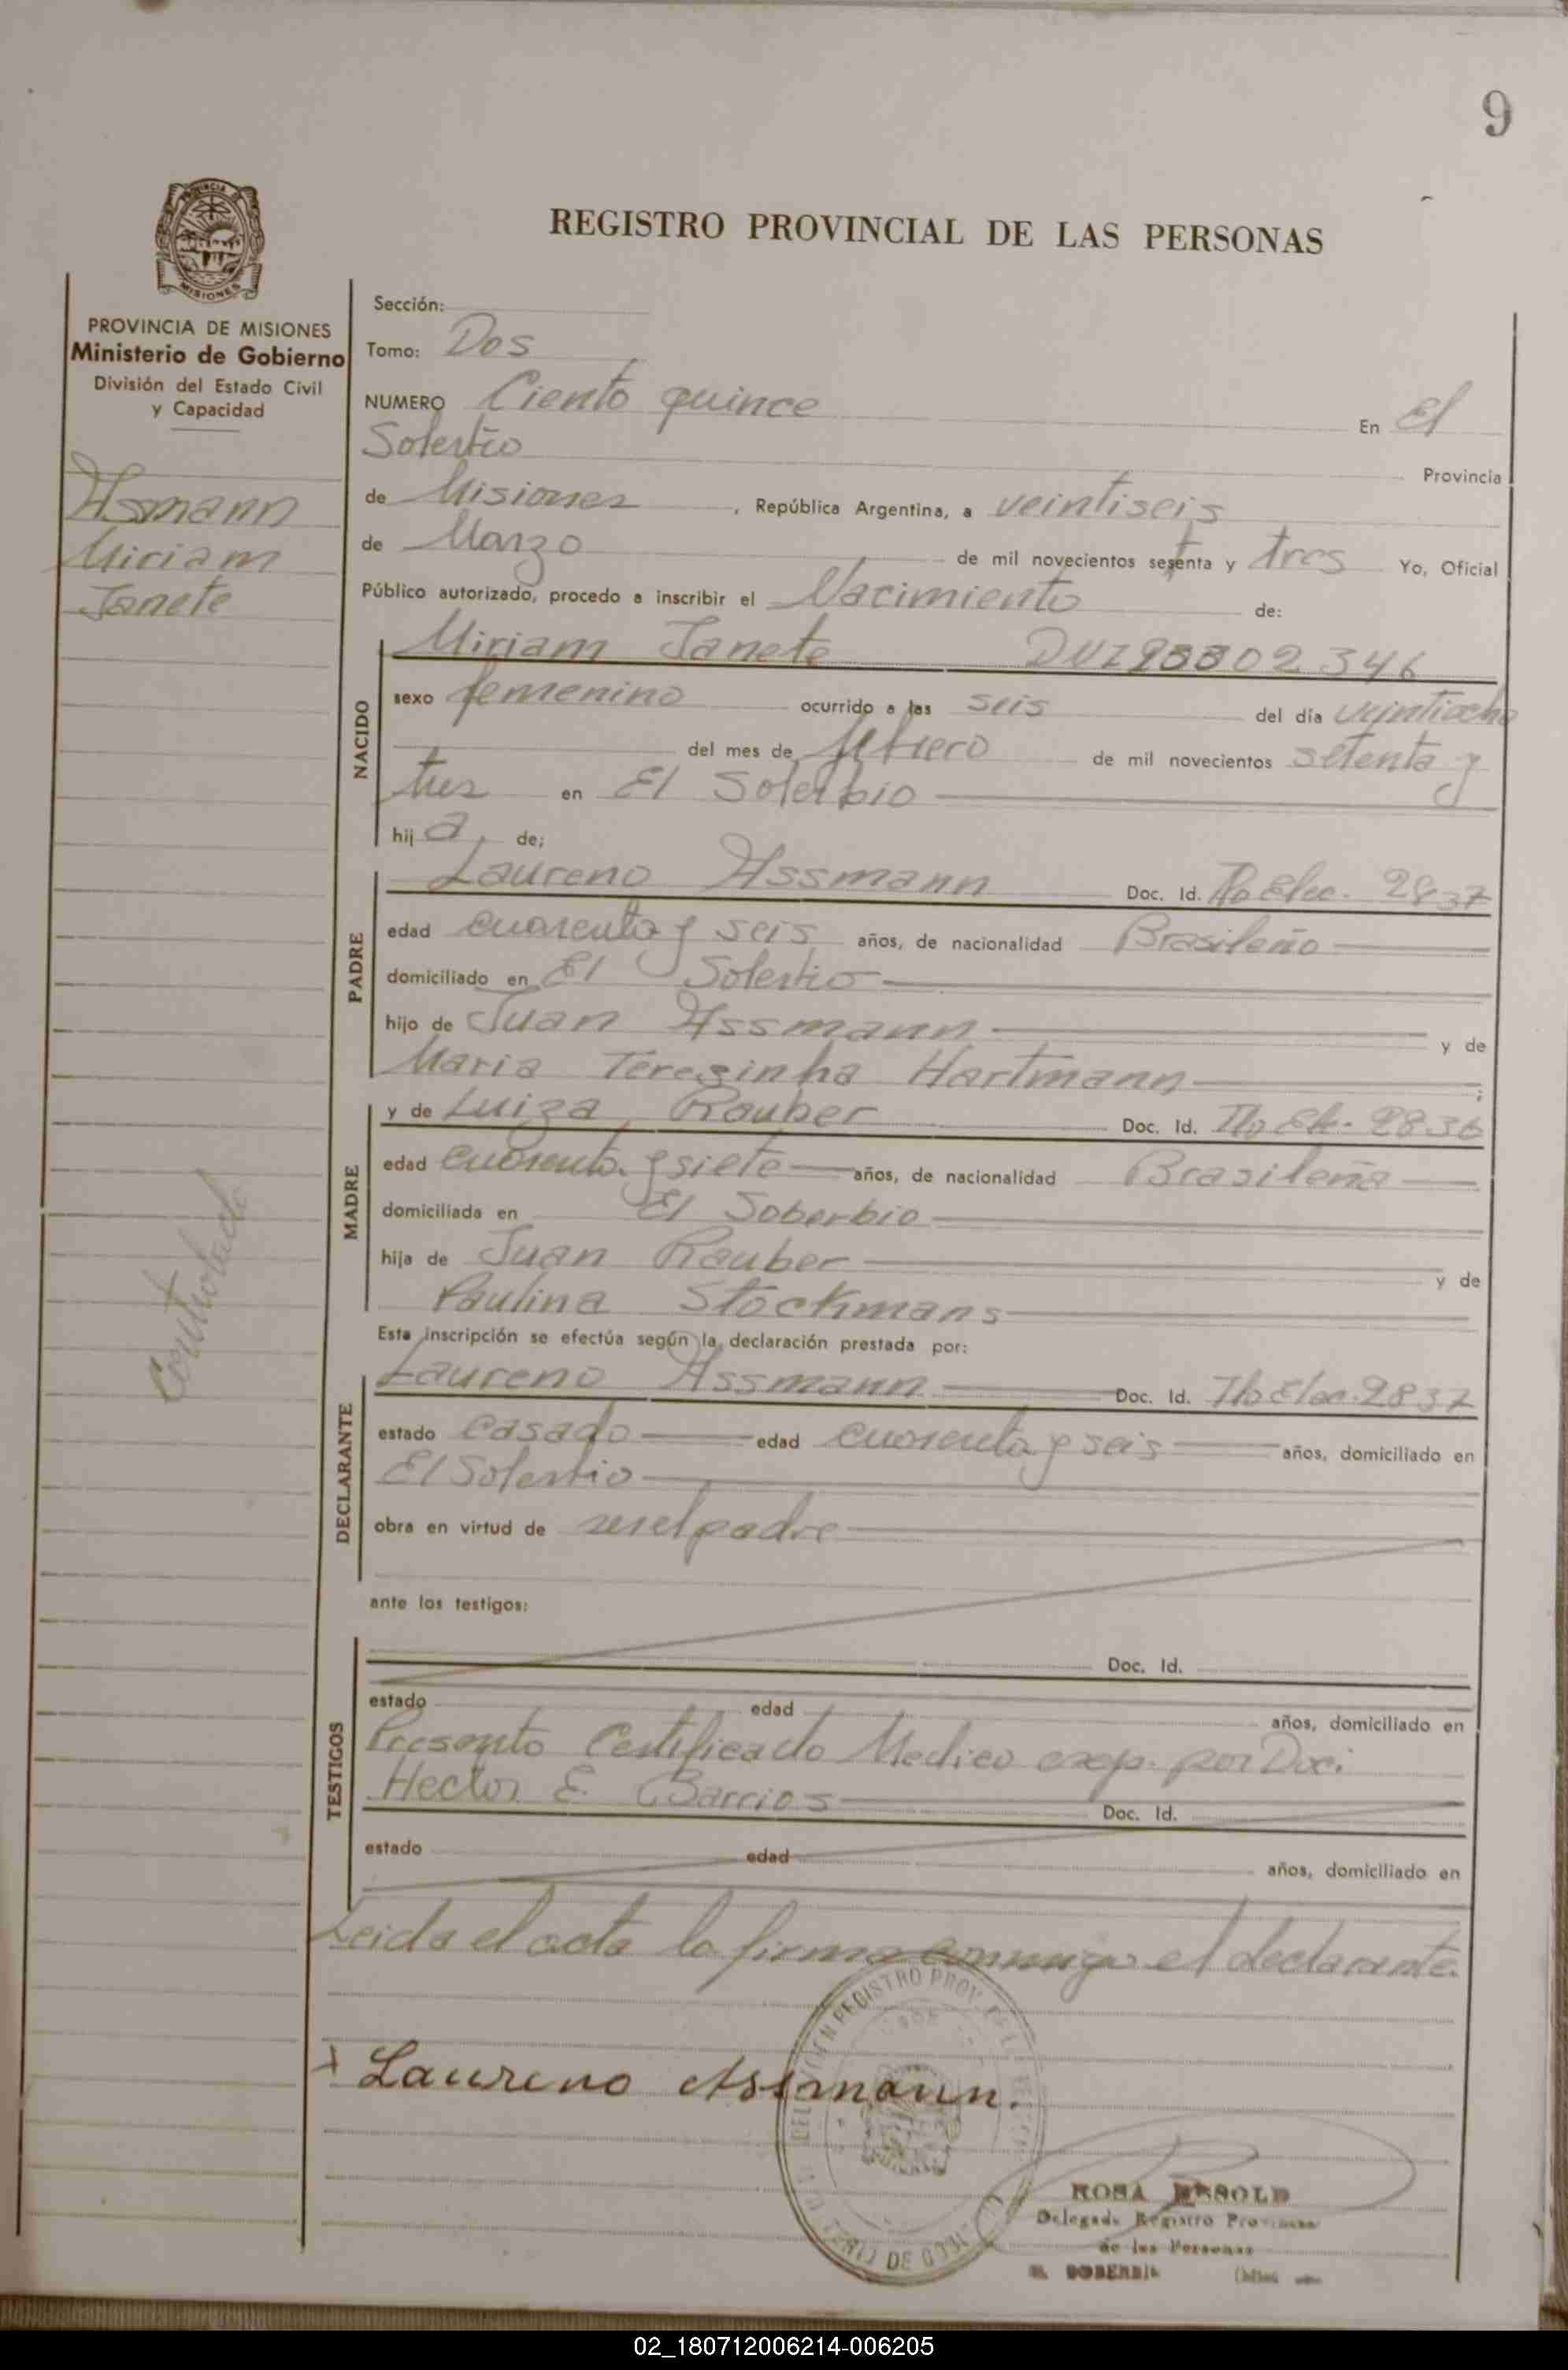 9
REGISTRO PROVINCIAL DE LAS PERSONAS
MISIONES
PROVINCIA DE MISIONES
Ministerio de Gobierno
División del Estado Civil
y Capacidad
Assmann
Miriam
Janete
Controlado
Sección:
Tomo: Dos
NUMERO Ciento quince En El
Soberbio Provincia
de Misiones, República Argentina, a veintiseis
de Marzo de mil novecientos setenta y tres Yo, Oficial
Público autorizado, procedo a inscribir el Nacimiento de:
Miriam Janete
NACIDO
sexo femenino ocurrido a las seis del día veintiocho
del mes de febrero de mil novecientos setenta y
tres en El Soberbio
hija de:
PADRE
Laureno Assmann Doc. Id. 2837
edad cuarenta y seis años, de nacionalidad Brasileño
domiciliado en El Soberbio
hijo de Juan Assmann y de
Maria Tereginha Hartmann;
MADRE
y de Luiza Rauber Doc. Id. 2836
edad cuarenta y siete años, de nacionalidad Brasileña
domiciliada en El Soberbio
hija de Juan Rauber y de
Paulina Stockmans
Esta inscripción se efectúa según la declaración prestada por:
DECLARANTE
Laureno Assmann Doc. Id. 2837
estado casado edad cuarenta y seis años, domiciliado en
El Soberbio
obra en virtud de ser el padre
ante los testigos:
TESTIGOS
Doc. Id.
estado edad años, domiciliado en
Presento Certificado Medico exp. por Doc.
Hector E. Barrios Doc. Id.
estado edad años, domiciliado en
Leida el acta la firma conmigo el declarante.
Laureno Assmann.
ROSA
Delegada Registro Provincial
de las Personas
EL SOBERBIO
02_180712006214-006205